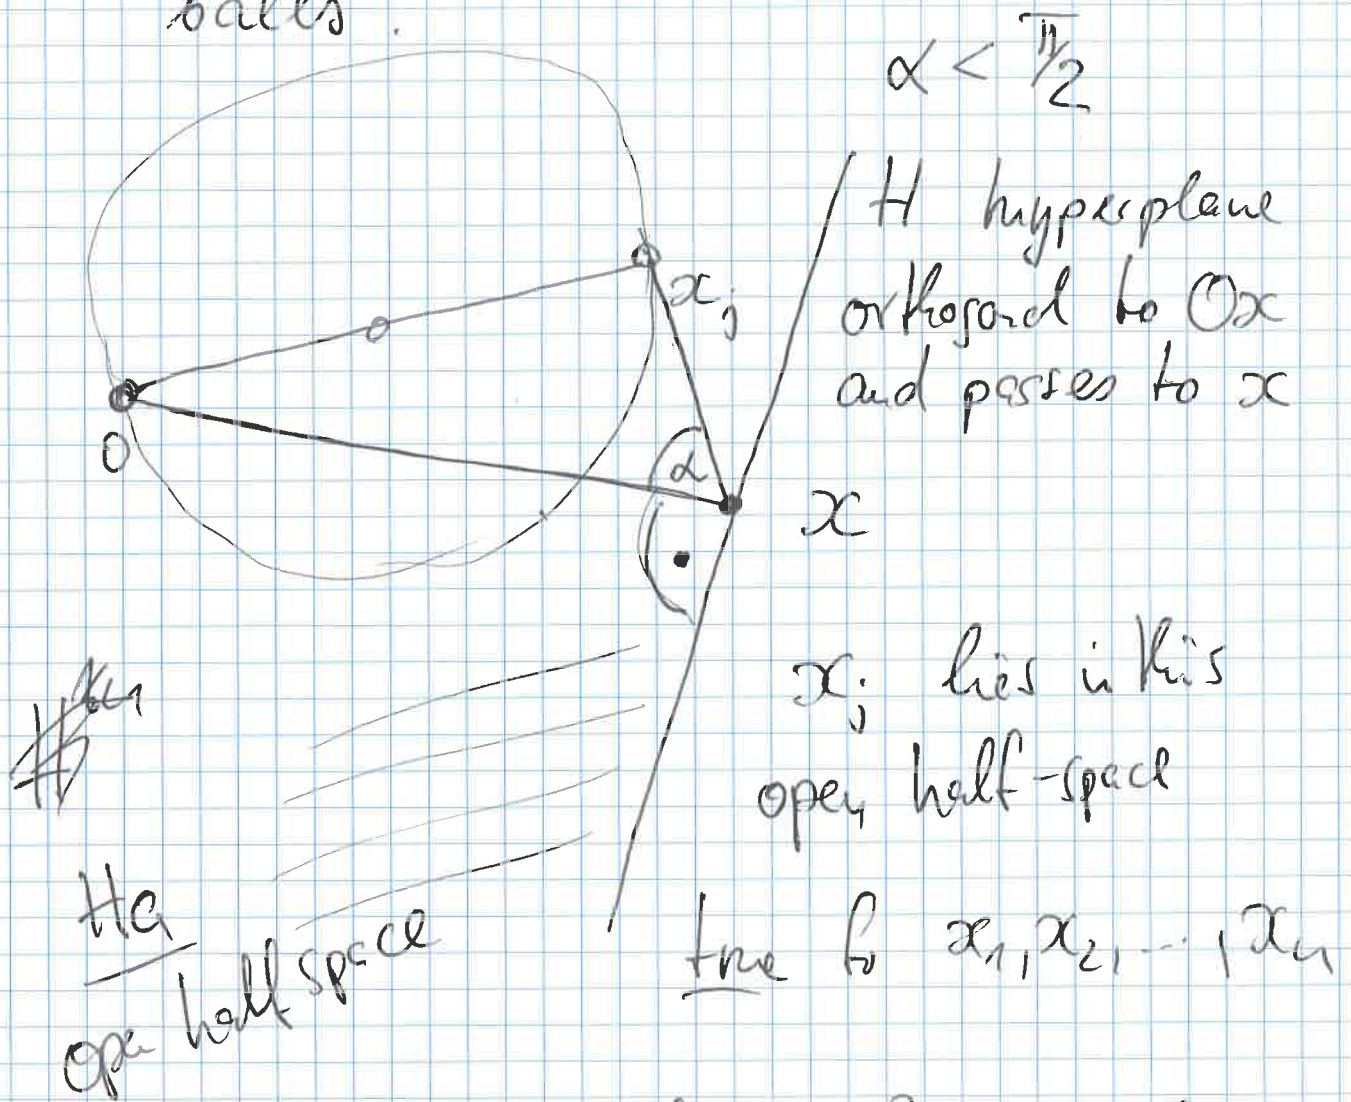 balls.
α < π/2
H hyperplane
orthogonal to Ox
and passes to x
x_j
O
α
x
x_j lies in this
open half-space
H_a
open half space
true for x_1, x_2, ..., x_n